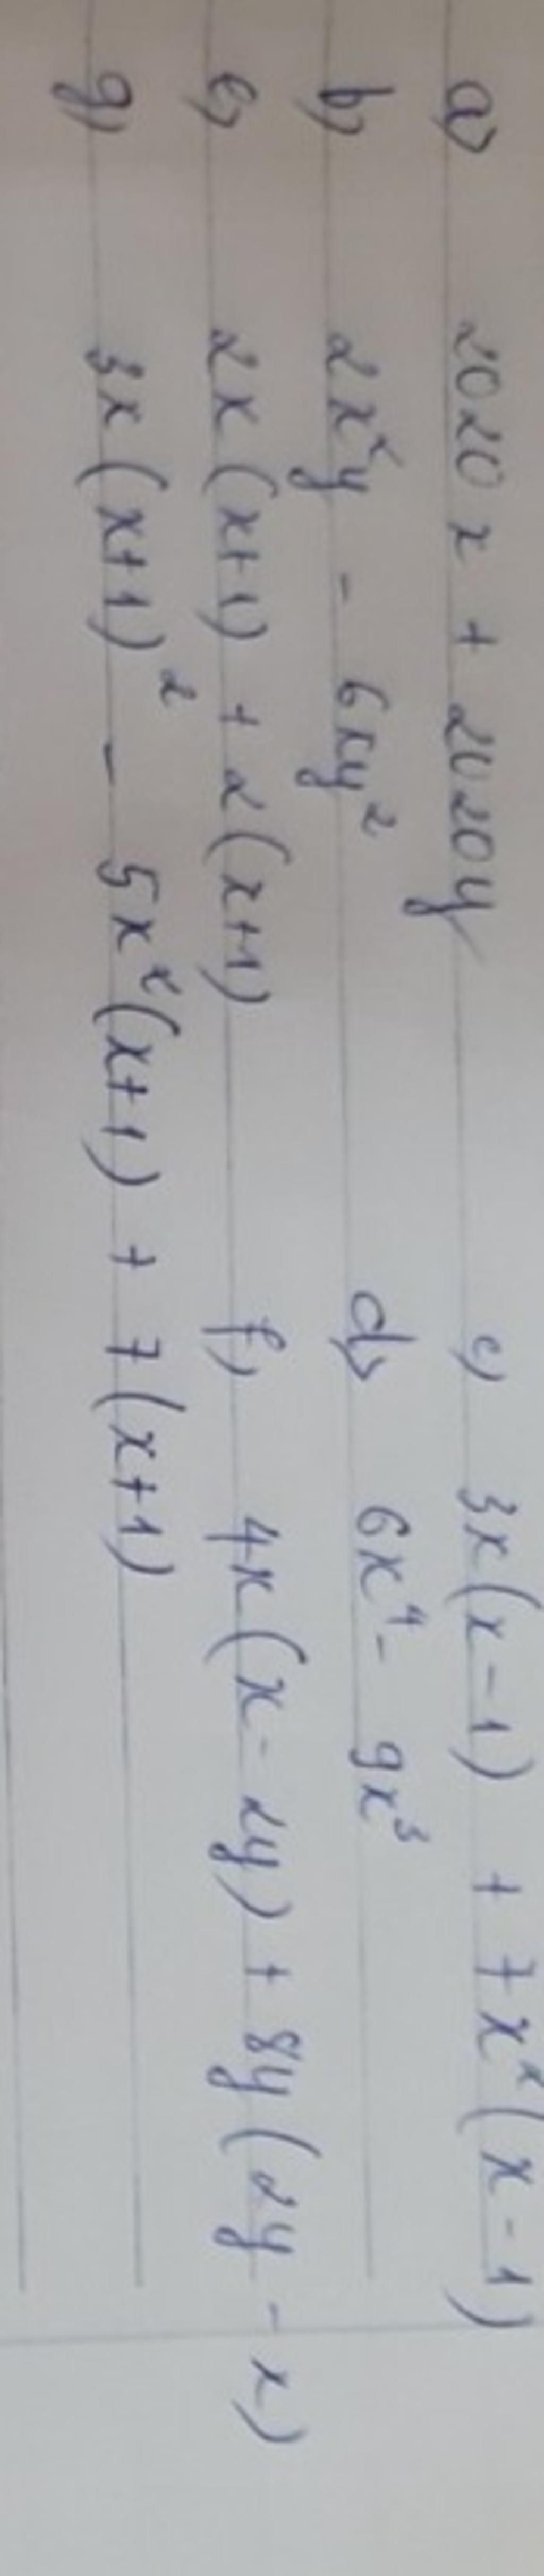 a) 2020x + 2020y c) 3x(x-1) + 7x²(x-1)
b) 2x²y - 6xy² d) 6x⁴ - 9x³
e) 2x(x+1) + 2(x+1) f) 4x(x-2y) + 8y(2y-x)
g) 3x(x+1)² - 5x²(x+1) + 7(x+1)